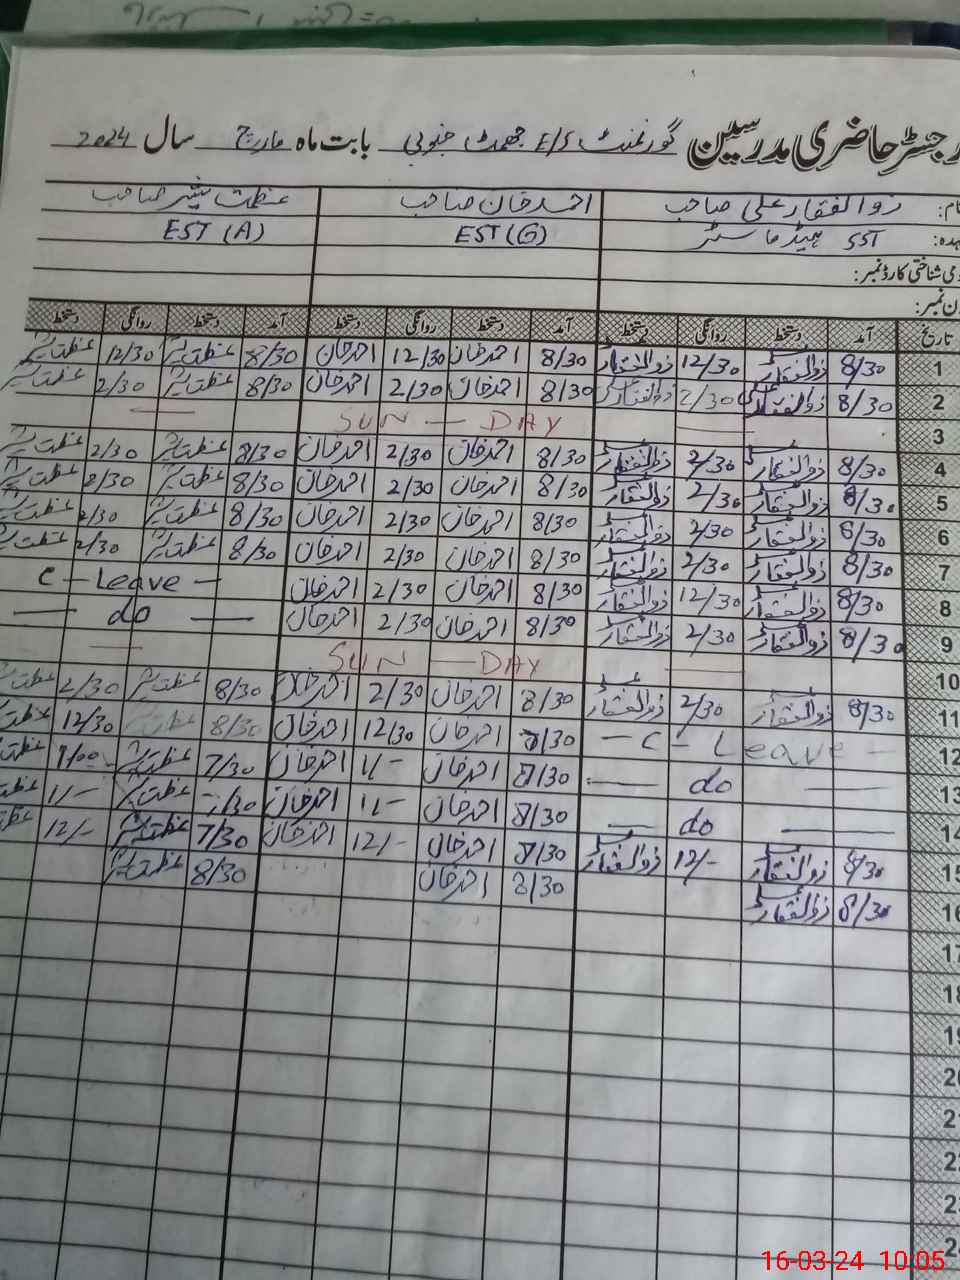 رجسٹر حاضری مدرسین گورنمنٹ E/S جھمٹ جنوبی بابت ماہ مارچ سال 2024
نام: ذوالفقار علی صاحب احمد خان صاحب عظمت بشیر صاحب
عہدہ: SST ہیڈ ماسٹر EST (G) EST (A)
قومی شناختی کارڈ نمبر:
فون نمبر:
تاریخ آمد دستخط روانگی دستخط آمد دستخط روانگی دستخط آمد دستخط روانگی دستخط
1 8/30 ذوالفقار 12/30 ذوالفقار 8/30 احمد خان 12/30 احمد خان 8/30 عظمت بشیر 12/30 عظمت بشیر
2 8/30 ذوالفقار علی 2/30 ذوالفقار علی 8/30 احمد خان 2/30 احمد خان 8/30 عظمت بشیر 2/30 عظمت بشیر
3 SUN — DAY
4 8/30 ذوالفقار 2/30 ذوالفقار 8/30 احمد خان 2/30 احمد خان 8/30 عظمت بشیر 2/30 عظمت بشیر
5 8/30 ذوالفقار 2/30 ذوالفقار 8/30 احمد خان 2/30 احمد خان 8/30 عظمت بشیر 2/30 عظمت بشیر
6 8/30 ذوالفقار 2/30 ذوالفقار 8/30 احمد خان 2/30 احمد خان 8/30 عظمت بشیر 2/30 عظمت بشیر
7 8/30 ذوالفقار 2/30 ذوالفقار 8/30 احمد خان 2/30 احمد خان 8/30 عظمت بشیر 2/30 عظمت بشیر
8 8/30 ذوالفقار 12/30 ذوالفقار 8/30 احمد خان 2/30 احمد خان C — Leave —
9 8/30 ذوالفقار 2/30 ذوالفقار 8/30 احمد خان 2/30 احمد خان — do —
10 SUN — DAY
11 8/30 ذوالفقار 2/30 ذوالفقار 8/30 احمد خان 2/30 احمد خان 8/30 عظمت بشیر 2/30 عظمت بشیر
12 — C — Leave — 7/30 احمد خان 12/30 احمد خان 8/30 عظمت 12/30 عظمت
13 — do — 7/30 احمد خان 1/- احمد خان 7/30 عظمت بشیر 1/00 عظمت
14 — do — 7/30 احمد خان 1/- احمد خان 7/30 عظمت بشیر 1/- عظمت
15 8/30 ذوالفقار 12/- ذوالفقار 7/30 احمد خان 12/- احمد خان 7/30 عظمت بشیر 12/- عظمت
16 8/30 ذوالفقار 8/30 احمد خان 8/30 عظمت بشیر
17
18
19
20
21
22
23
24
16-03-24 10:05